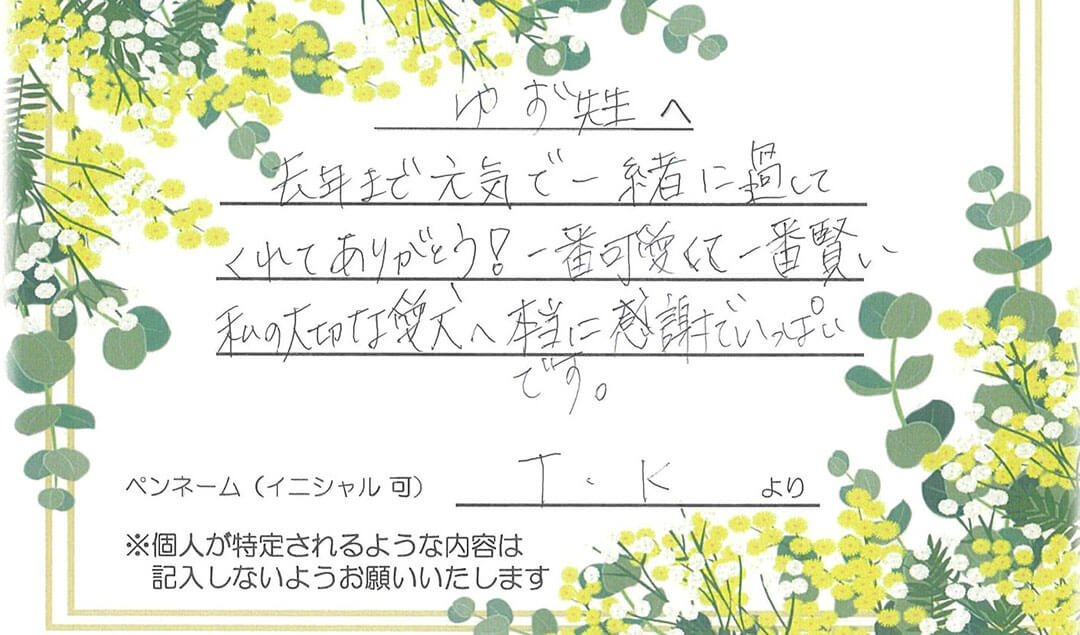 ゆず先生へ
長年まで元気で一緒に過して
くれてありがとう!一番可愛くて一番賢い
私の大切な愛犬へ本当に感謝でいっぱい
です。
ペンネーム(イニシャル 可) T.K より
※個人が特定されるような内容は
記入しないようお願いいたします